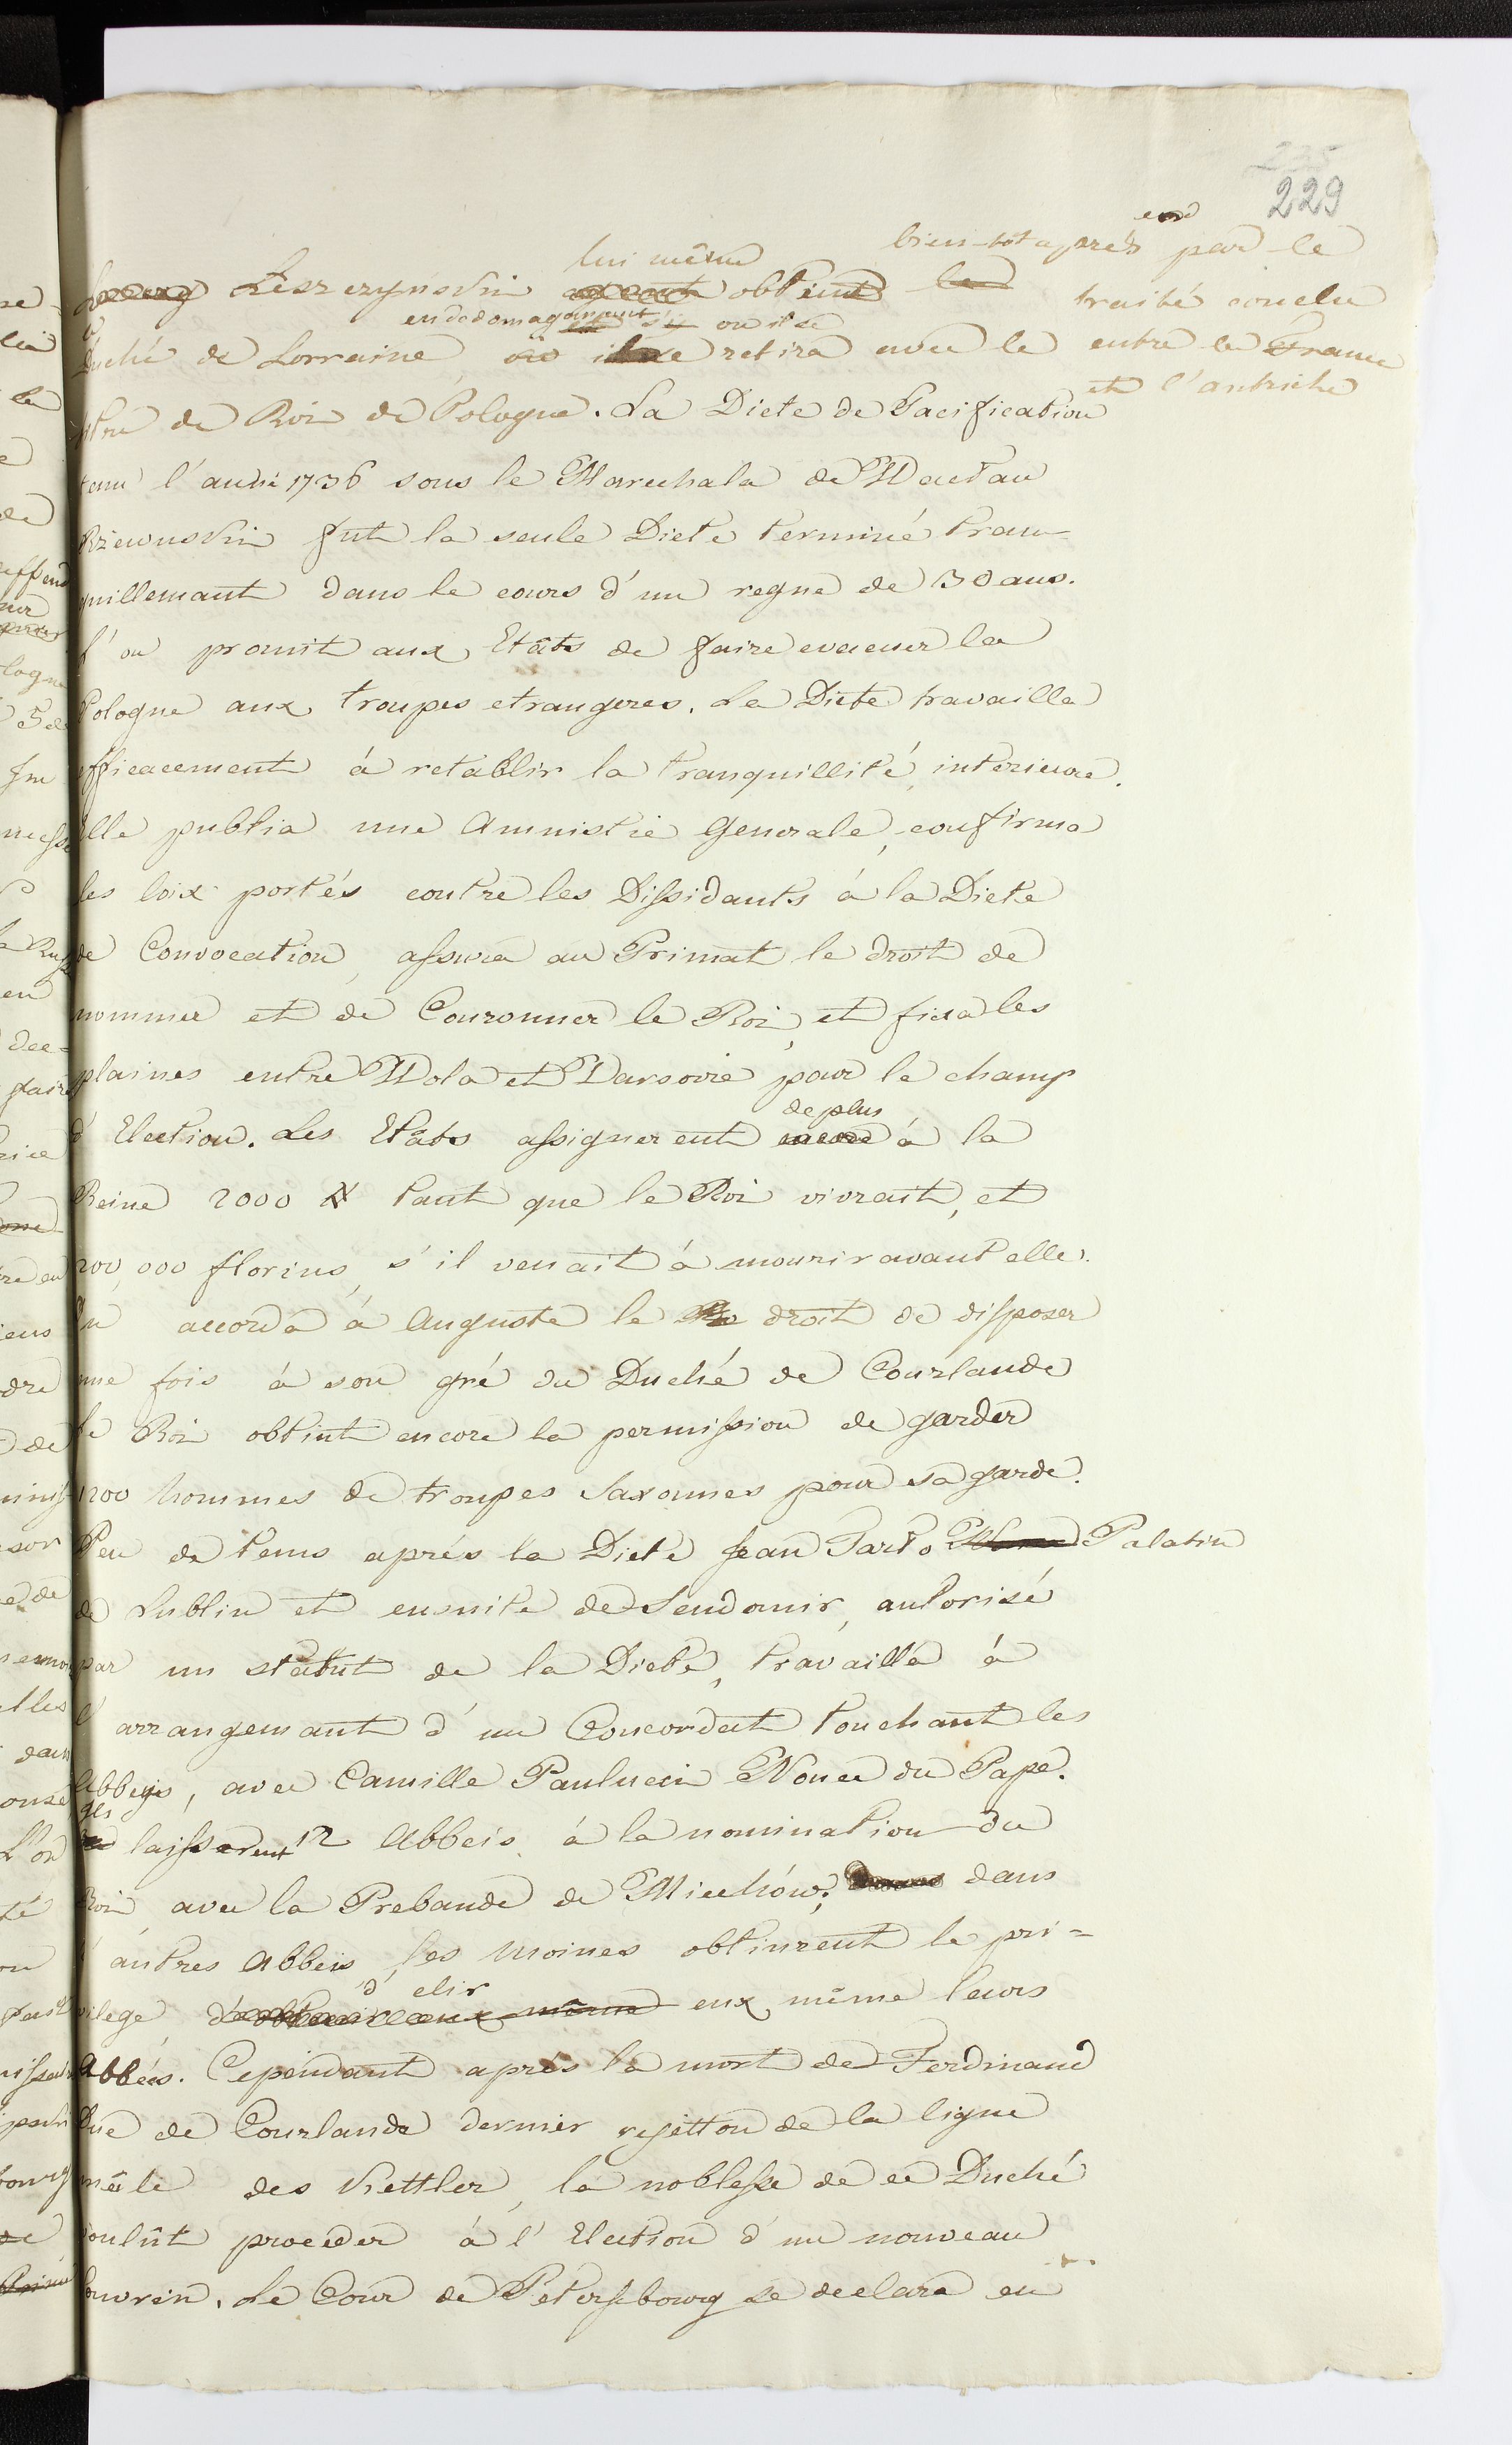 235
229
bien-tot aprés par le
lui même
Leszczynski obtint
traité conclu
en dedomagemant ou il se
Duché de Lorraine, retira avec le
entre la France
et l'autriche
titre de Roi de Pologne. La Diete de Pacification
tenu l'année 1736 sous le Marechala de Waclau
Rzewuski fut la seule Diete terminé tran-
quillemant dans le cours d'un regne de 30 ans.
l'on promit aux Etâts de faire evacuer la
Pologne aux troupes etrangeres. La Diete travailla
efficacement á retablir la tranquillité, interieure.
Elle publia une Amnistie Generale, confirma
les loix portés contre les Dissidants á la Diete
de Convocation, assura au Primat le droit de
nommer et de Couronner le Roi, et fixa les
plaines entre Wola et Warsovie pour le champ
de plus
d'Election. Les Etâts assignerent á la
Reine 2000 # tant que le Roi vivrait, et
200,000 florins, s'il venait á mourir avant elle.
On accorda á Auguste le droit de disposer
une fois á son gré du Duché de Courlande
le Roi obtint encore la permission de garder
1200 hommes de troupes Saxonnes pour sa garde.
Peu de tems aprés la Diete Jean Tarło Palatin
de Lublin et ensuite de Sendomir, autorisé
par un statut de la Diete, travailla á
l'arrangemant d'un Concordat touchant les
Abbeys, avec Camille Paulucci Nonce du Pape.
ils laisserent 12 Abbeis á la nomination du
Roi avec la Prebande de Miechów; dans
d'autres Abbeis les Moines obtinrent le pri-
d'elir
vilege eux même leurs
Abbées. Cependant aprés la mort de Ferdinand
Duc de Courlande dernier rejetton de la ligne
mâle des Kettler, la noblesse de ce Duché
voulût proceder á l'Election d'un nouveau
Souvrin. La Cour de Petersbourg se declara en